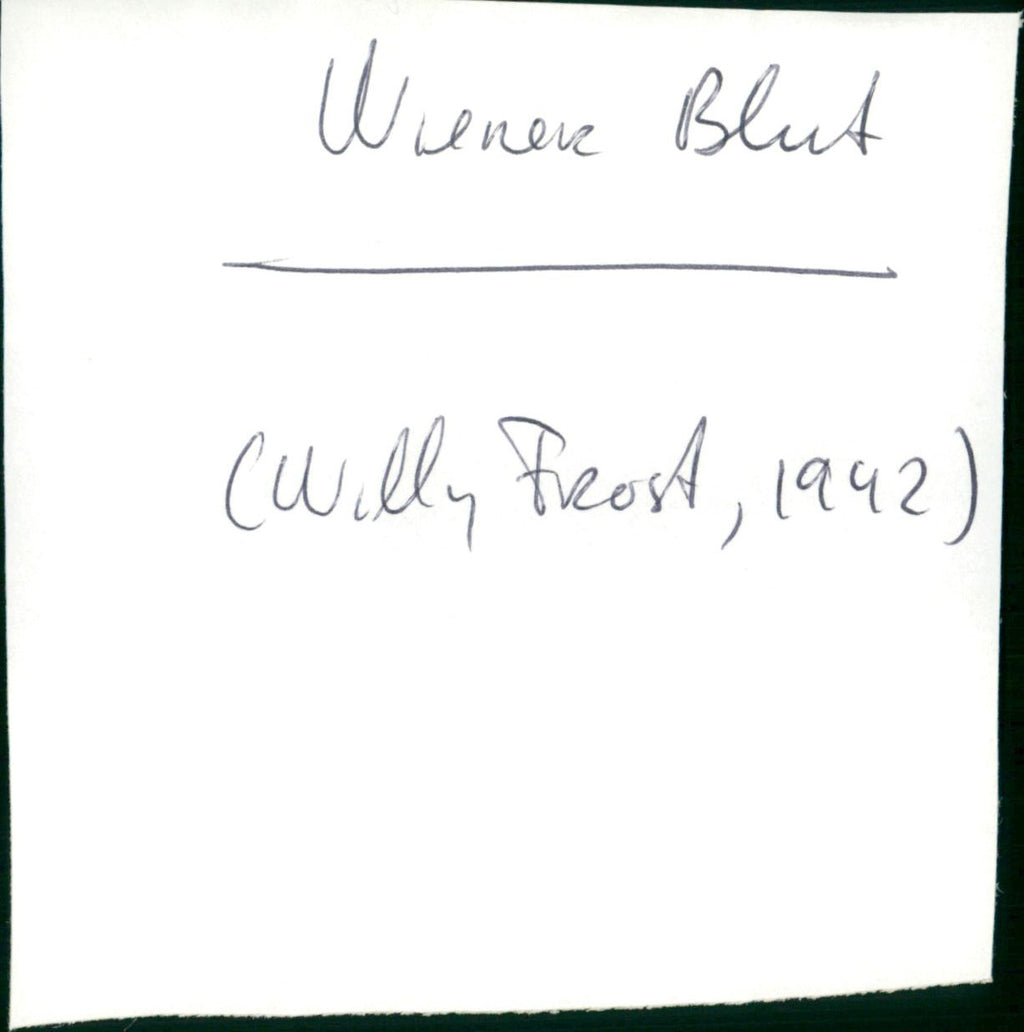 Wiener Blut
(Willy Frost, 1942)